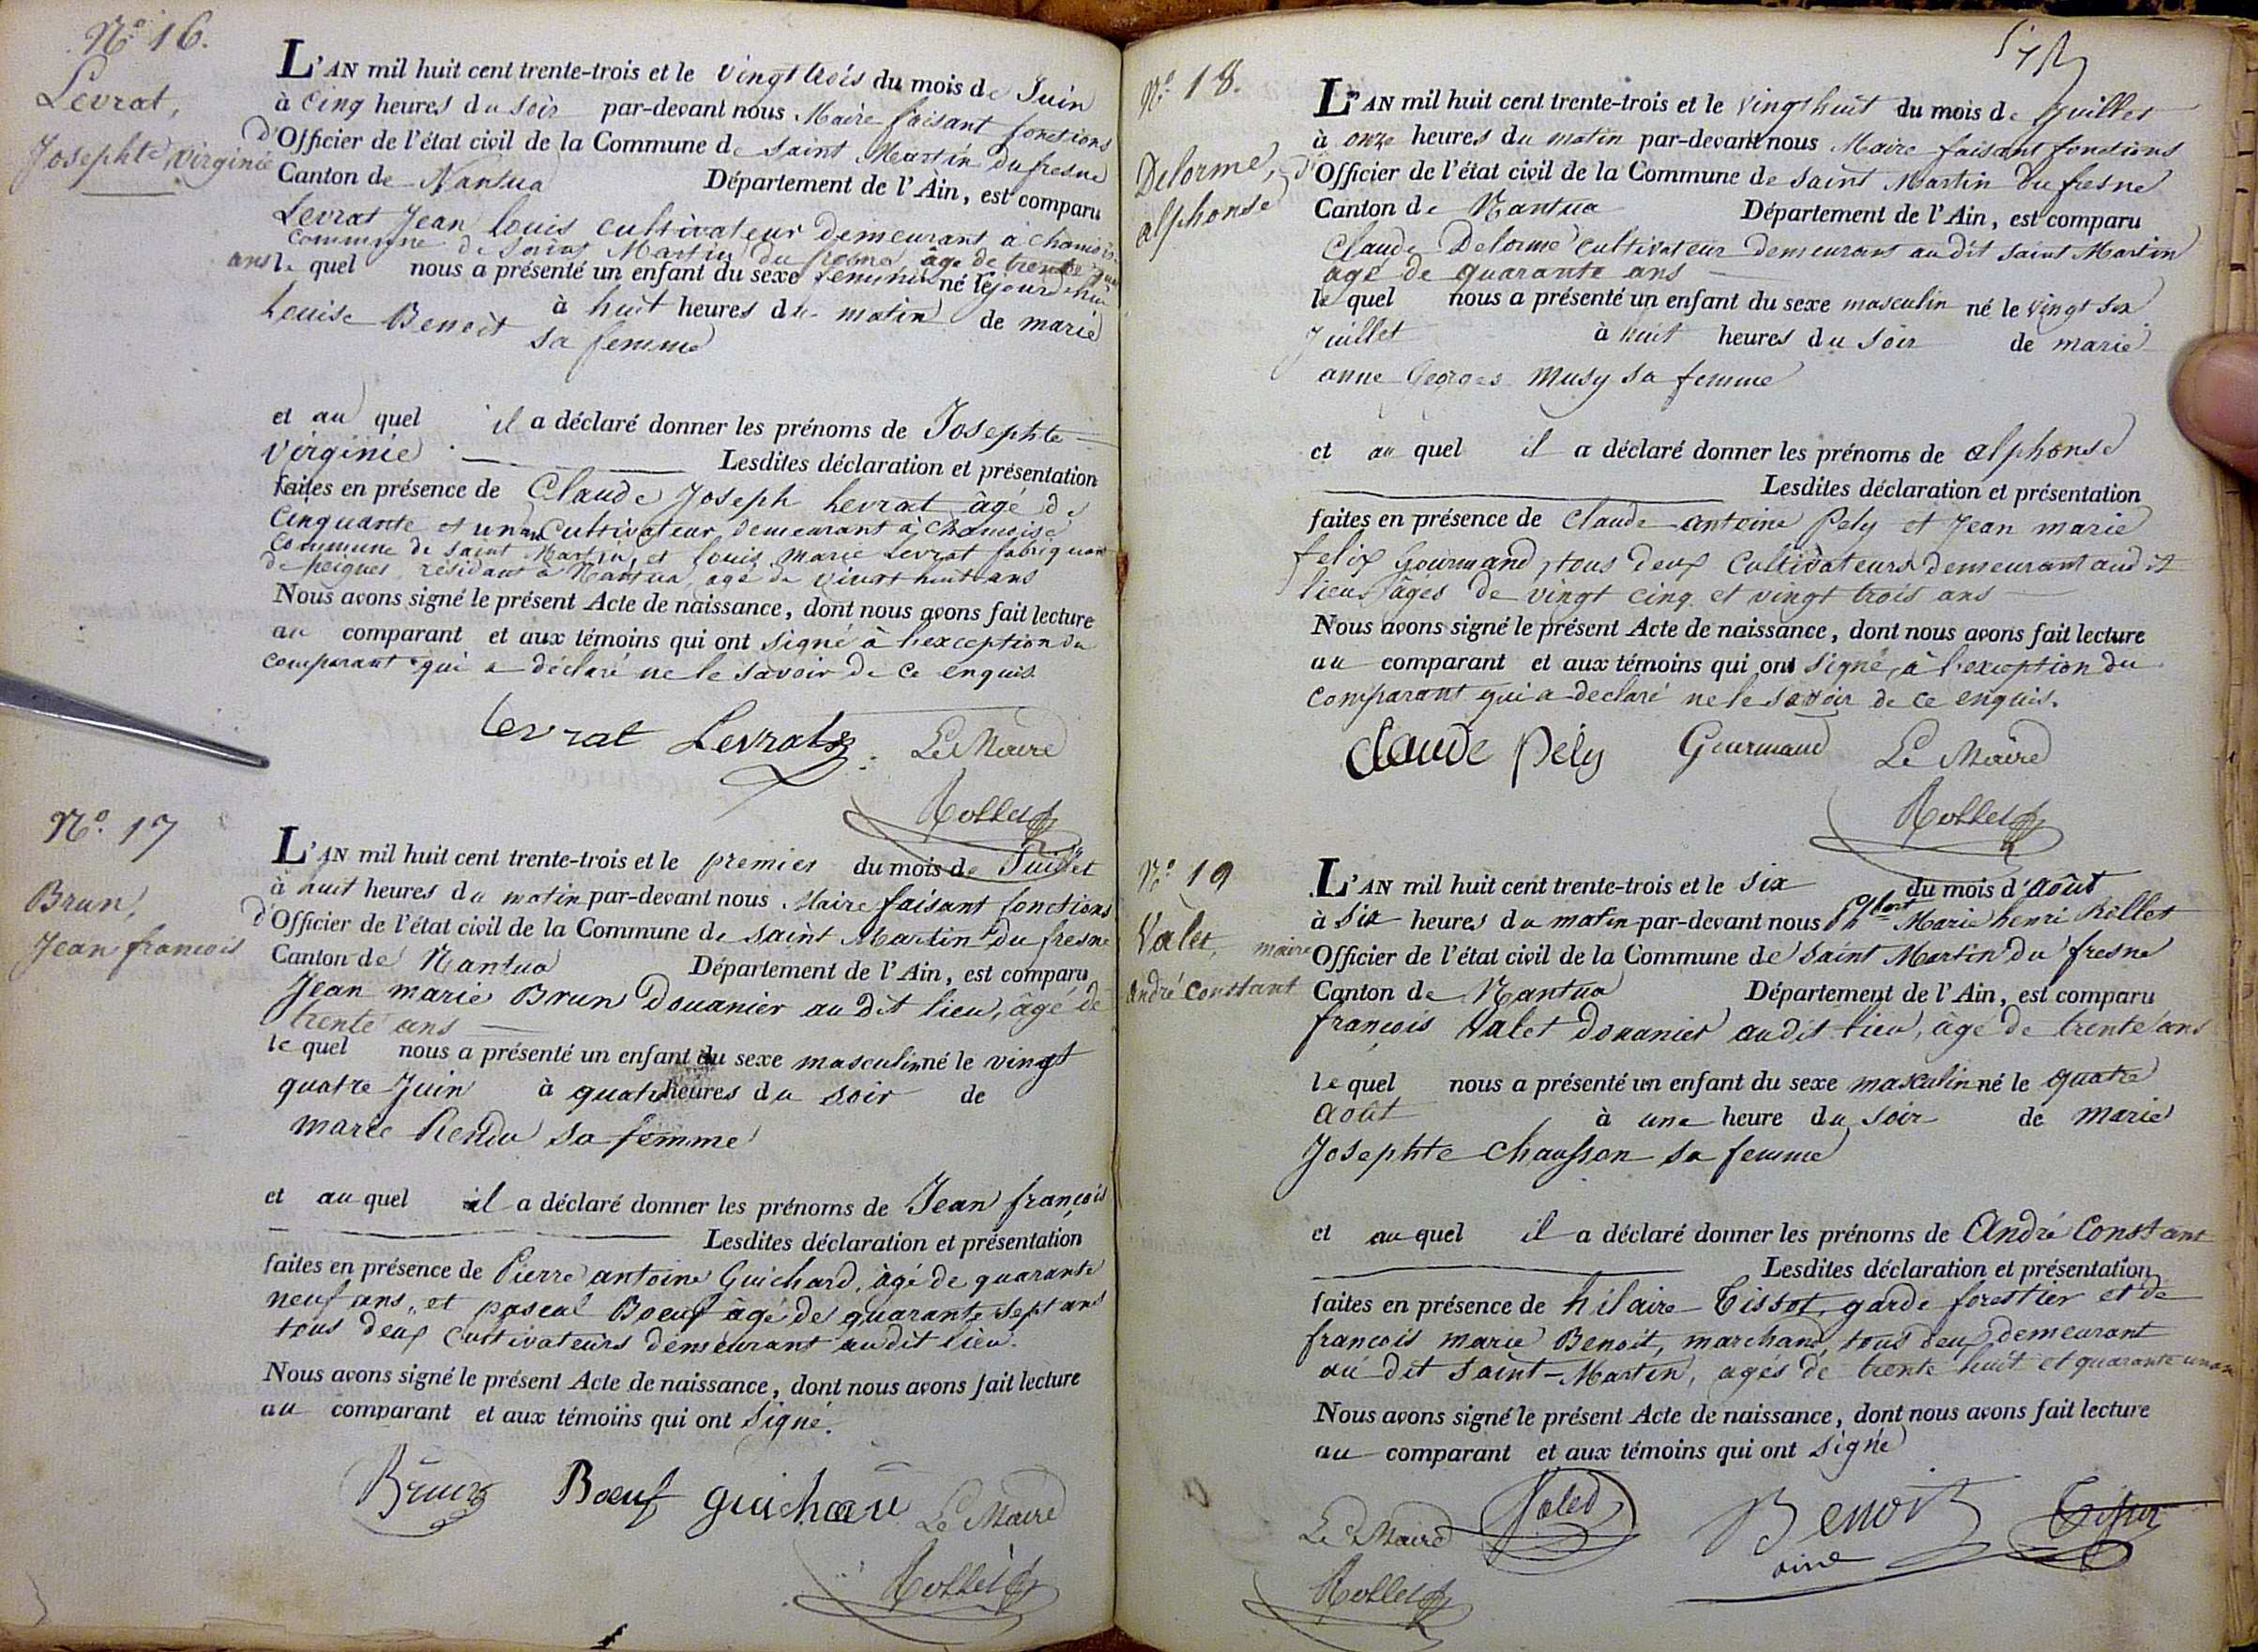 N.º 16.
Levrat,
Josephte Virginie
L'AN mil huit cent trente-trois et le vingt trois du mois de Juin
à cinq heures du soir par-devant nous Maire faisant fonctions
d'Officier de l'état civil de la Commune de saint Martin du fresne
Canton de Nantua Département de l'Ain, est comparu
Levrat Jean Louis cultivateur demeurant à
commune de saint Martin du fresne, âgé de trente
ans le quel nous a présenté un enfant du sexe feminin né le jourd'hui
à huit heures du matin de marie
Louise Benoit sa femme
et au quel il a déclaré donner les prénoms de Josephte
Virginie. Lesdites déclaration et présentation
faites en présence de Claude Joseph Levrat âgé de
cinquante et un an cultivateur demeurant à chamoise
commune de saint Martin, et Louis Marie Levrat fabriquant
de peignes résidant à Nantua, agé de vingt huit ans
Nous avons signé le présent Acte de naissance, dont nous avons fait lecture
au comparant et aux témoins qui ont signé à l'exception du
comparant qui a déclaré ne le savoir de ce enquis.
Levrat Levrat Le Maire
Rollet
N.º 17
Brun,
Jean francois
L'AN mil huit cent trente-trois et le premier du mois de Juillet
à huit heures du matin par-devant nous Maire faisant fonctions
d'Officier de l'état civil de la Commune de saint Martin du fresne
Canton de Nantua Département de l'Ain, est comparu
Jean marie Brun Douanier au dit lieu, âgé de
trente ans
le quel nous a présenté un enfant du sexe masculin né le vingt
quatre Juin à quatre heures du soir de
marie Rendu sa femme
et au quel il a déclaré donner les prénoms de Jean françois
Lesdites déclaration et présentation
faites en présence de Pierre antoine Guichard, âgé de quarante
neuf ans, et pascal Boeuf âgé de quarante sept ans
tous deux cultivateurs demeurant audit lieu.
Nous avons signé le présent Acte de naissance, dont nous avons fait lecture
au comparant et aux témoins qui ont signé.
Brun Boeuf guichard Le Maire
Rollet
N.º 18.
Delorme,
alphonse
L'AN mil huit cent trente-trois et le vingt huit du mois de Juillet
à onze heures du matin par-devant nous Maire faisant fonctions
d'Officier de l'état civil de la Commune de saint Martin du fresne
Canton de Nantua Département de l'Ain, est comparu
Claude Delorme cultivateur demeurant audit saint Martin
agé de quarante ans
le quel nous a présenté un enfant du sexe masculin né le vingt six
Juillet à huit heures du soir de marie
anne Georges Musy sa femme
et au quel il a déclaré donner les prénoms de alphonse
Lesdites déclaration et présentation
faites en présence de Claude antoine Pely et Jean marie
felix Gourmand, tous deux cultivateurs demeurant audit
lieu, âgés de vingt cinq et vingt trois ans
Nous avons signé le présent Acte de naissance, dont nous avons fait lecture
au comparant et aux témoins qui ont signé, à l'exception du
comparant qui a declaré ne le savoir de ce enquis.
Claude Pely Gourmand Le Maire
Rollet
N.º 19
Valet,
andré constant
L'AN mil huit cent trente-trois et le six du mois d'août
à six heures du matin par-devant nous Marie henri Rollet
maire Officier de l'état civil de la Commune de saint Martin du fresne
Canton de Nantua Département de l'Ain, est comparu
françois Valet Douanier audit lieu, âgé de trente ans
le quel nous a présenté un enfant du sexe masculin né le quatre
août à une heure du soir de marie
Josephte Chausson sa femme
et au quel il a déclaré donner les prénoms de André Constant
Lesdites déclaration et présentation
faites en présence de hilaire Tissot, garde forestier et de
françois marie Benoit, marchand, tous deux demeurant
au dit saint-Martin, agés de trente huit et quarante un ans
Nous avons signé le présent Acte de naissance, dont nous avons fait lecture
au comparant et aux témoins qui ont signé
Le Maire Valet Benoit Tissot
aine
Rollet